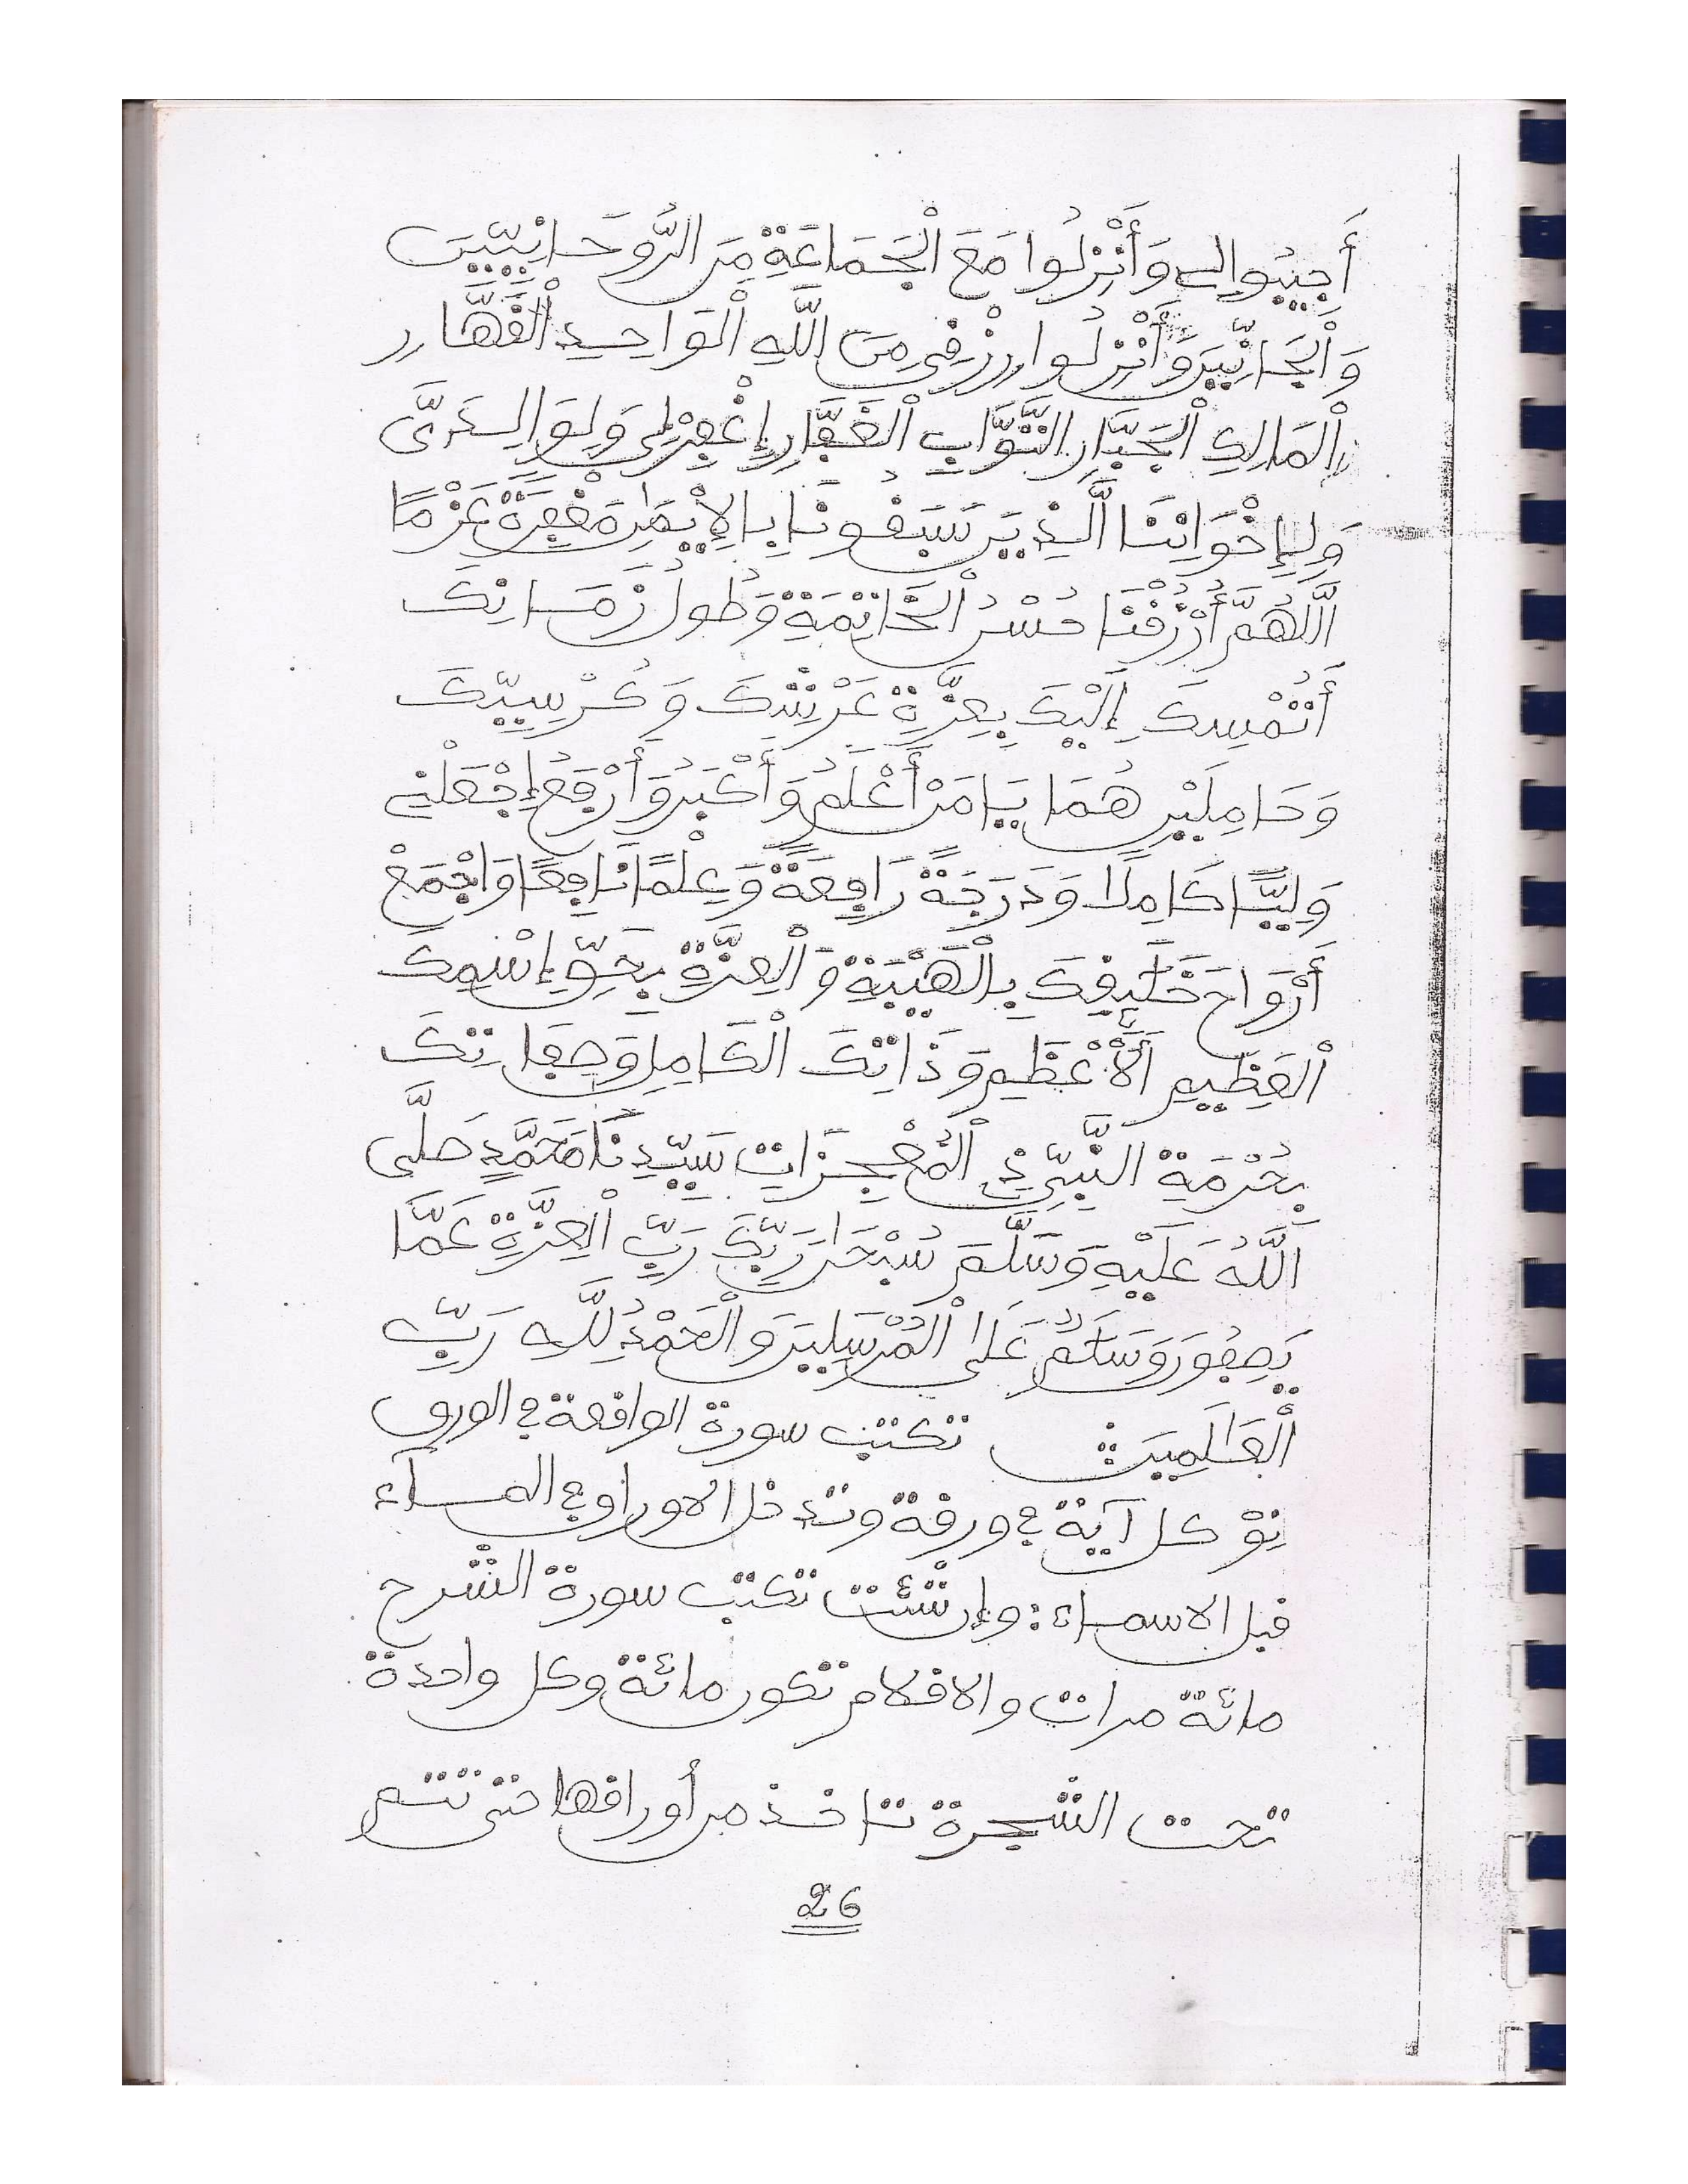 أَجِيبُوا لِي وَأَنْزِلُوا مَعَ الْجَمَاعَةِ مِنَ الرُّوحَانِيِّينَ
وَالْجَانِّينَ وَأَنْزِلُوا رِزْقِي مِنَ اللَّهِ الْوَاحِدِ الْقَهَّارِ
الْمَالِكِ الْجَبَّارِ التَّوَّابِ الْغَفَّارِ إِغْفِرْلِي وَلِوَالِدَيَّ
وَلِإِخْوَانِنَا الَّذِينَ سَبَقُونَا بِالْإِيمَانِ مَغْفِرَةً عَزْمًا
اللَّهُمَّ أُرْزُقْنَا حُسْنُ الْخَاتِمَةِ وَطُولُ زَمَانِكَ
أَتُمْسِكَ إِلَيْكَ بِعِزَّةِ عَرْشِكَ وَكُرْسِيِّكَ
وَحَامِلَيْنِ هُمَا يَا مَنْ أَعْلَمُ وَأَكْبَرُ وَأَرْفَعُ إِجْعَلْنِي
وَلِيًّا كَامِلًا وَدَرَجَةً رَافِعَةً وَعِلْمًا نَافِعًا وَاجْمَعْ
أَرْوَاحَ خَلِيفِكَ بِالْهَيْبَةِ وَالْعِزَّةِ بِحَقِّ إِسْمِكَ
الْعَظِيمِ الْأَعْظَمِ وَذَاتِكَ الْكَامِلِ وَصِفَاتِكَ
بِحُرْمَةِ النَّبِيِّ ذِي الْمُعْجِزَاتِ سَيِّدِنَا مُحَمَّدٍ صَلَّى
اللَّهُ عَلَيْهِ وَسَلَّمَ سُبْحَانَ رَبِّكَ رَبِّ الْعِزَّةِ عَمَّا
يَصِفُونَ وَسَلَامٌ عَلَى الْمُرْسَلِينَ وَالْحَمْدُ لِلَّهِ رَبِّ
الْعَالَمِينَ تكتب سورة الواقعة في الورق
كل آية في ورقة وتدخل الاوراق في المساء
قبل الاسماء: وإن شئت تكتب سورة الشرح
مائة مرات والاقلام تكون مائة وكل واحدة
تحت الشجرة تاخذ من أوراقها حتى تتم
26